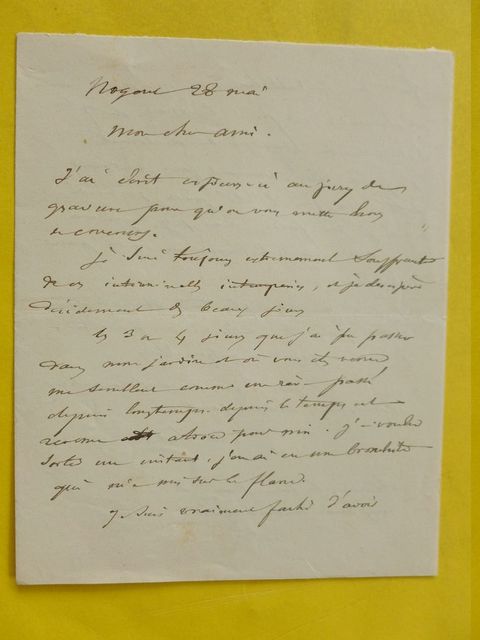 Nogent 28 mai
Mon cher ami.
J'ai écrit au jury de
gravure pour qu'on vous mette hors
concours.
Je suis toujours extrêmement souffrant
de ces interminables intempéries, et je désespère
décidément des beaux jours
les 3 ou 4 jours que j'ai pu passer
dans mon jardin et où vous êtes venu
me semblent comme un rêve passé
depuis longtemps. depuis le temps est
atroce pour moi. j'ai voulu
sortir un instant, j'en ai eu une bronchite
qui m'a mis sur le flanc.
Je suis vraiment fâché d'avoir